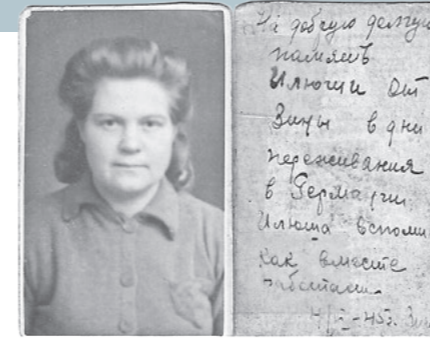 На добрую долгую
память
Илюши от
Зины в дни
переживания
в Германии
Илюша вспоми
как вместе
работали